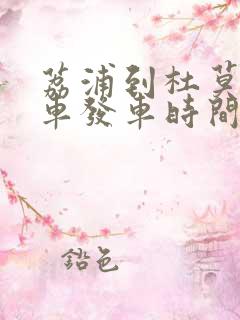 荔浦到杜莫
車發車時間
鉛色